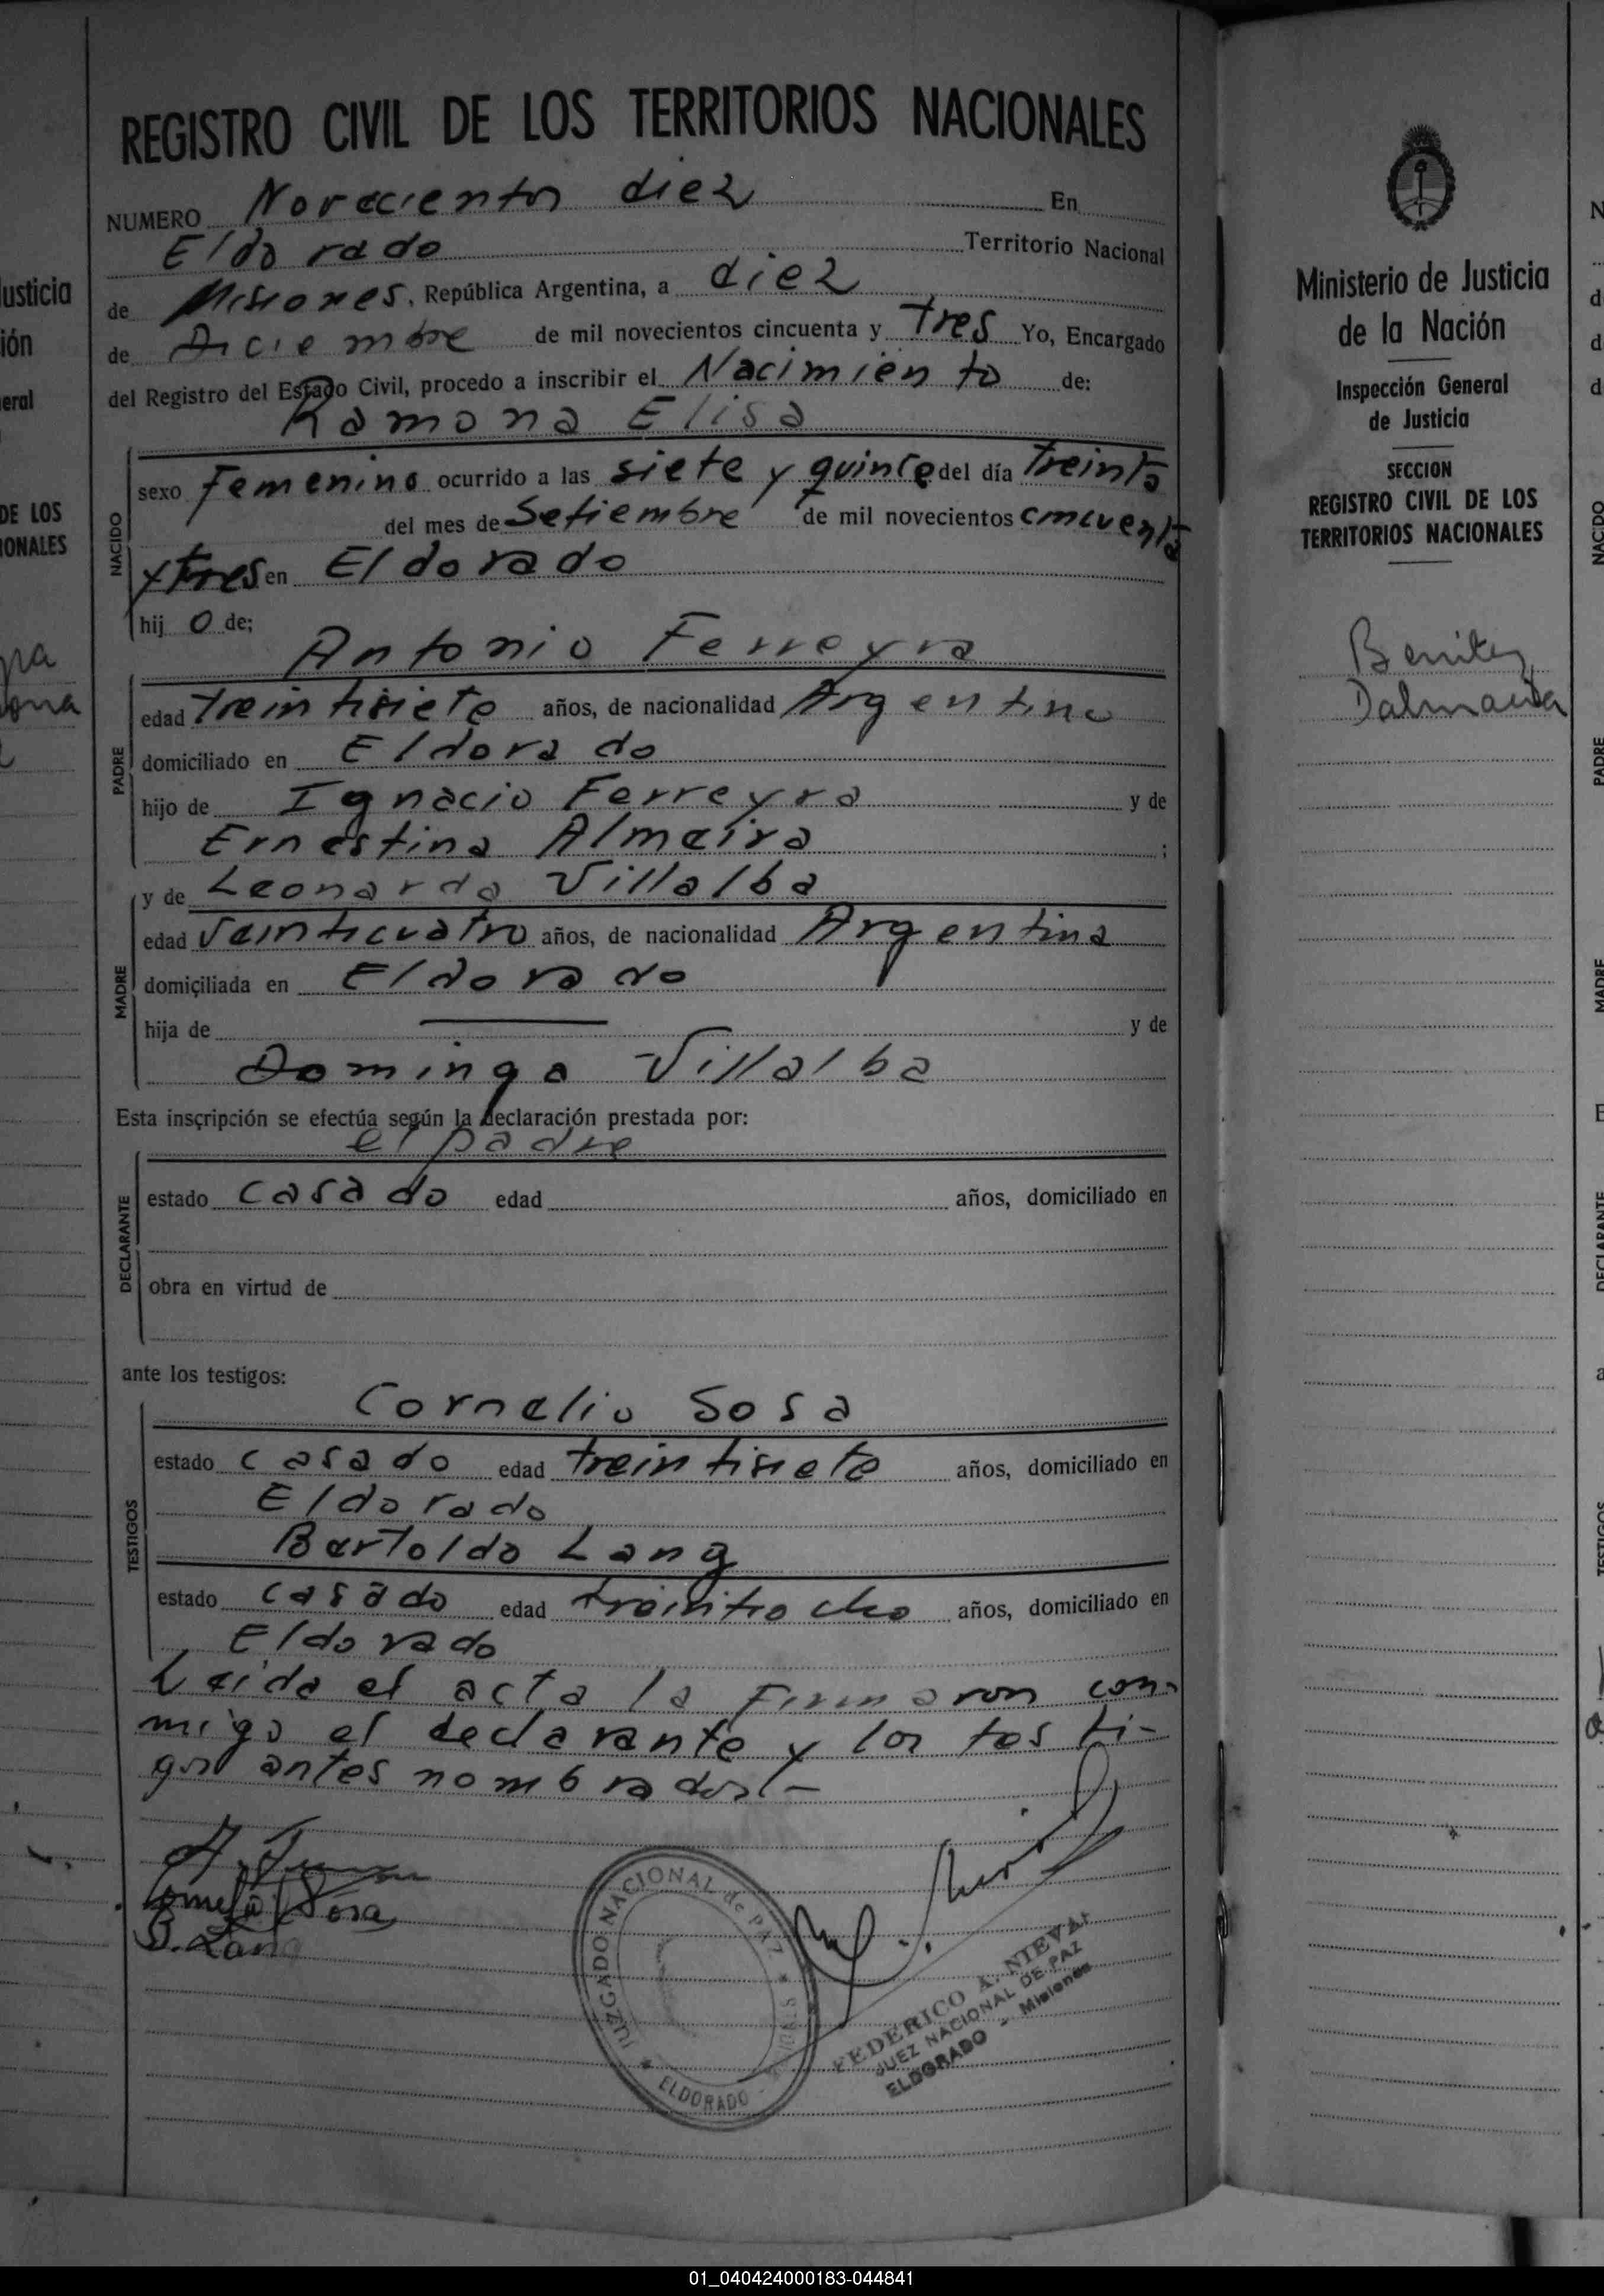 REGISTRO CIVIL DE LOS TERRITORIOS NACIONALES
NUMERO Novecientos diez En
Eldorado Territorio Nacional
de Misiones, República Argentina, a diez
de Diciembre de mil novecientos cincuenta y tres Yo, Encargado
del Registro del Estado Civil, procedo a inscribir el Nacimiento de:
Ramona Elisa
NACIDO
sexo Femenino ocurrido a las siete y quince del día treinta
del mes de Setiembre de mil novecientos cincuenta
y tres en Eldorado
hij o de:
Antonio Ferreyra
PADRE
edad treintisiete años, de nacionalidad Argentino
domiciliado en Eldorado
hijo de Ignacio Ferreyra y de
Ernestina Almeira ;
MADRE
y de Leonarda Villalba
edad Veinticuatro años, de nacionalidad Argentina
domiciliada en Eldorado
hija de — y de
Dominga Villalba
Esta inscripción se efectúa según la declaración prestada por:
el padre
DECLARANTE
estado casado edad años, domiciliado en
obra en virtud de
ante los testigos:
TESTIGOS
Cornelio Sosa
estado casado edad treintisiete años, domiciliado en
Eldorado
Bertoldo Lang
estado casado edad treintiocho años, domiciliado en
Eldorado
Leida el acta la Firmaron con-
migo el declarante y los testi-
gos antes nombrados.-
Cornelio Sosa
B. Lang
JUZGADO NACIONAL de PAZ
ELDORADO
FEDERICO A. NIEVA
JUEZ NACIONAL DE PAZ
ELDORADO - Misiones
Ministerio de Justicia
de la Nación
Inspección General
de Justicia
SECCION
REGISTRO CIVIL DE LOS
TERRITORIOS NACIONALES
Benitez
Dalmacia
usticia
ión
eral
DE LOS
IONALES
NACIDO
PADRE
MADRE
DECLARANTE
TESTIGOS
01_040424000183-044841